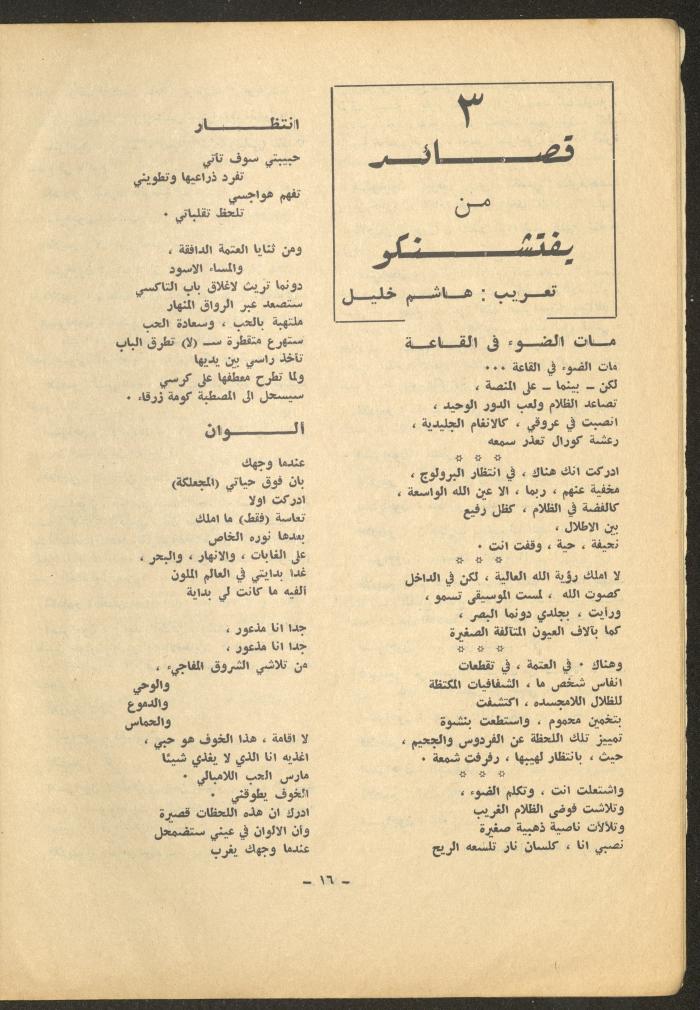 ٣
قصائد
من
يفتشنكو
تعريب : هاشم خليل
مات الضوء فى القاعة
مات الضوء في القاعة ...
لكن – بينما – على المنصة ،
تصاعد الظلام ولعب الدور الوحيد ،
انصبت في عروقي ، كالانغام الجليدية ،
رعشة كورال تعذر سمعه
* * *
ادركت انك هناك ، في انتظار البرولوج ،
مخفية عنهم ، ربما ، الا عين الله الواسعة ،
كالفضة في الظلام ، كظل رفيع
بين الاطلال ،
نحيفة ، حية ، وقفت انت .
* * *
لا املك رؤية الله العالية ، لكن في الداخل
كصوت الله ، لمست الموسيقى تسمو ،
ورأيت ، بجلدي دونما البصر ،
كما بآلاف العيون المتآلفة الصغيرة
* * *
وهناك . في العتمة ، في تقطعات
انفاس شخص ما ، الشفافيات المكتظة
للظلال اللامجسده ، اكتشفت
بتخمين محموم ، واستطعت بنشوة
تمييز تلك اللحظة عن الفردوس والجحيم ،
حيث ، بانتظار لهيبها ، رفرفت شمعة .
* * *
واشتعلت انت ، وتكلم الضوء ،
وتلاشت فوضى الظلام الغريب
وتلألات ناصية ذهبية صغيرة
نصبي انا ، كلسان نار تلسعه الريح
انتظار
حبيبتي سوف تأتي
تفرد ذراعيها وتطويني
تفهم هواجسي
تلحظ تقلباتي .
ومن ثنايا العتمة الدافقة ،
والمساء الاسود
دونما تريث لاغلاق باب التاكسي
ستصعد عبر الرواق المنهار
ملتهبة بالحب ، وسعادة الحب
ستهرع متقطرة ســ (لا) تطرق الباب
تأخذ راسي بين يديها
ولما تطرح معطفها على كرسي
سيسحل الى المصطبة كومة زرقاء .
ألوان
عندما وجهك
بان فوق حياتي (المجعلكة)
ادركت اولا
تعاسة (فقط) ما املك
بعدها نوره الخاص
على الغابات ، والانهار ، والبحر ،
غدا بدايتي في العالم الملون
ألفيه ما كانت لي بداية
جدا انا مذعور ،
جدا انا مذعور ،
من تلاشي الشروق المفاجيء ،
والوحي
والدموع
والحماس
لا اقامة ، هذا الخوف هو حبي ،
اغذيه انا الذي لا يغذي شيئا
مارس الحب اللامبالي .
الخوف يطوقني .
ادرك ان هذه اللحظات قصيرة
وأن الالوان في عيني ستضمحل
عندما وجهك يغرب
– ١٦ –